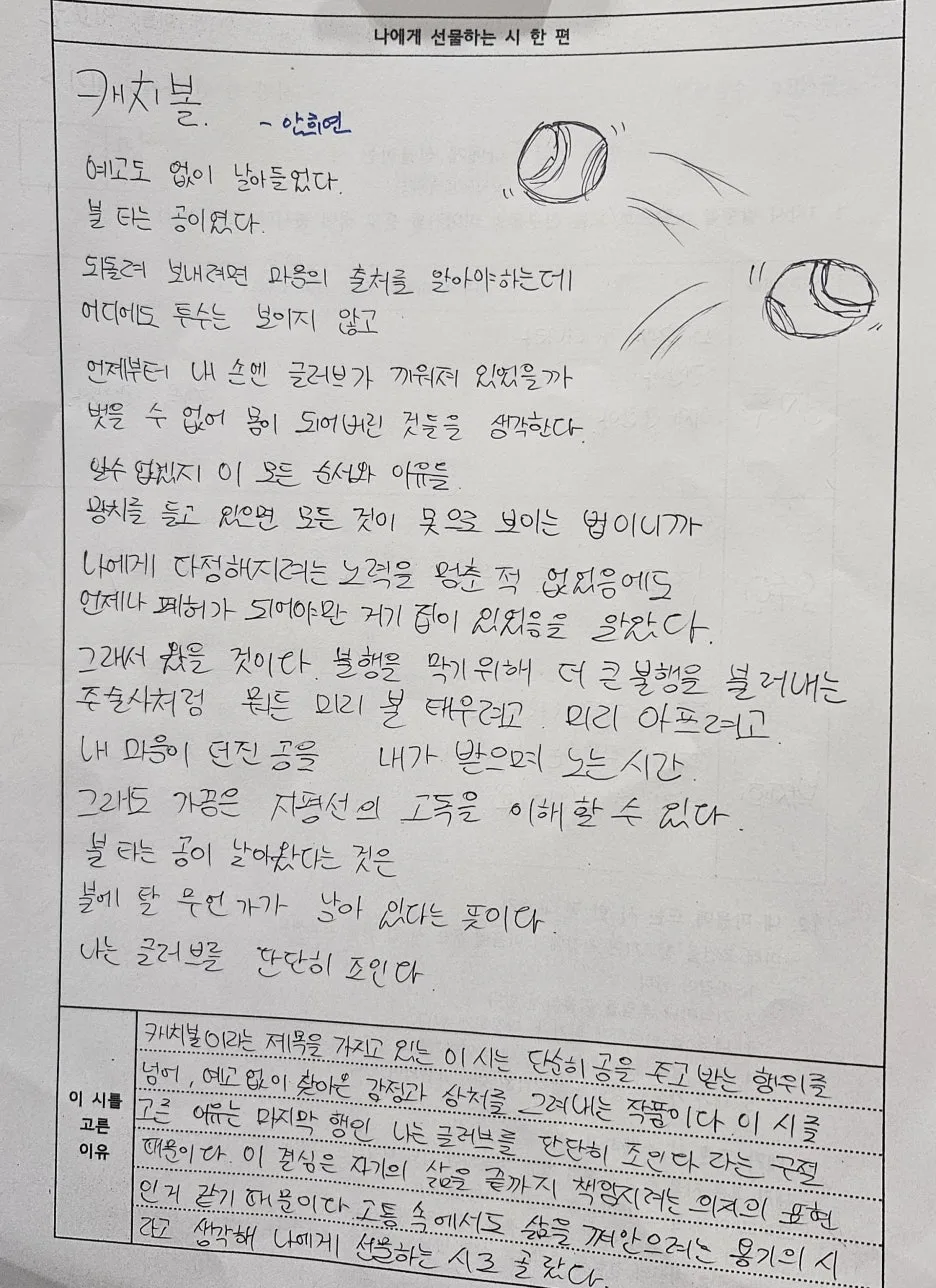 나에게 선물하는 시 한 편
캐치볼.
- 안희연
예고도 없이 날아들었다.
불 타는 공이였다.
되돌려 보내려면 마음의 출처를 알아야하는데
어디에도 투수는 보이지 않고
언제부터 내 손엔 글러브가 끼워져 있었을까
벗을 수 없어 몸이 되어버린 것들을 생각한다.
알수 없겠지 이 모든 순서와 이유들.
망치를 들고 있으면 모든 것이 못으로 보이는 법이니까
나에게 다정해지려는 노력을 멈춘 적 없었음에도
언제나 폐허가 되어야만 거기 집이 있었음을 알았다.
그래서 왔을 것이다. 불행을 막기위해 더 큰 불행을 불러내는
주술사처럼 뭐든 미리 불 태우려고. 미리 아프려고.
내 마음이 던진 공을 내가 받으며 노는 시간.
그래도 가끔은 지평선의 고독을 이해할 수 있다.
불 타는 공이 날아왔다는 것은
불에 탈 무언가가 남아 있다는 뜻이다.
나는 글러브를 단단히 조인다.
이 시를
고른
이유
캐치볼이라는 제목을 가지고 있는 이 시는 단순히 공을 주고 받는 행위를
넘어, 예고 없이 찾아온 감정과 상처를 그려내는 작품이다. 이 시를
고른 이유는 마지막 행인 나는 글러브를 단단히 조인다 라는 구절
때문이다. 이 결심은 자기의 삶을 끝까지 책임지려는 의지의 표현
인거 같기 때문이다 고통 속에서도 삶을 껴안으려는 용기의 시
라고 생각해 나에게 선물하는 시로 골랐다.